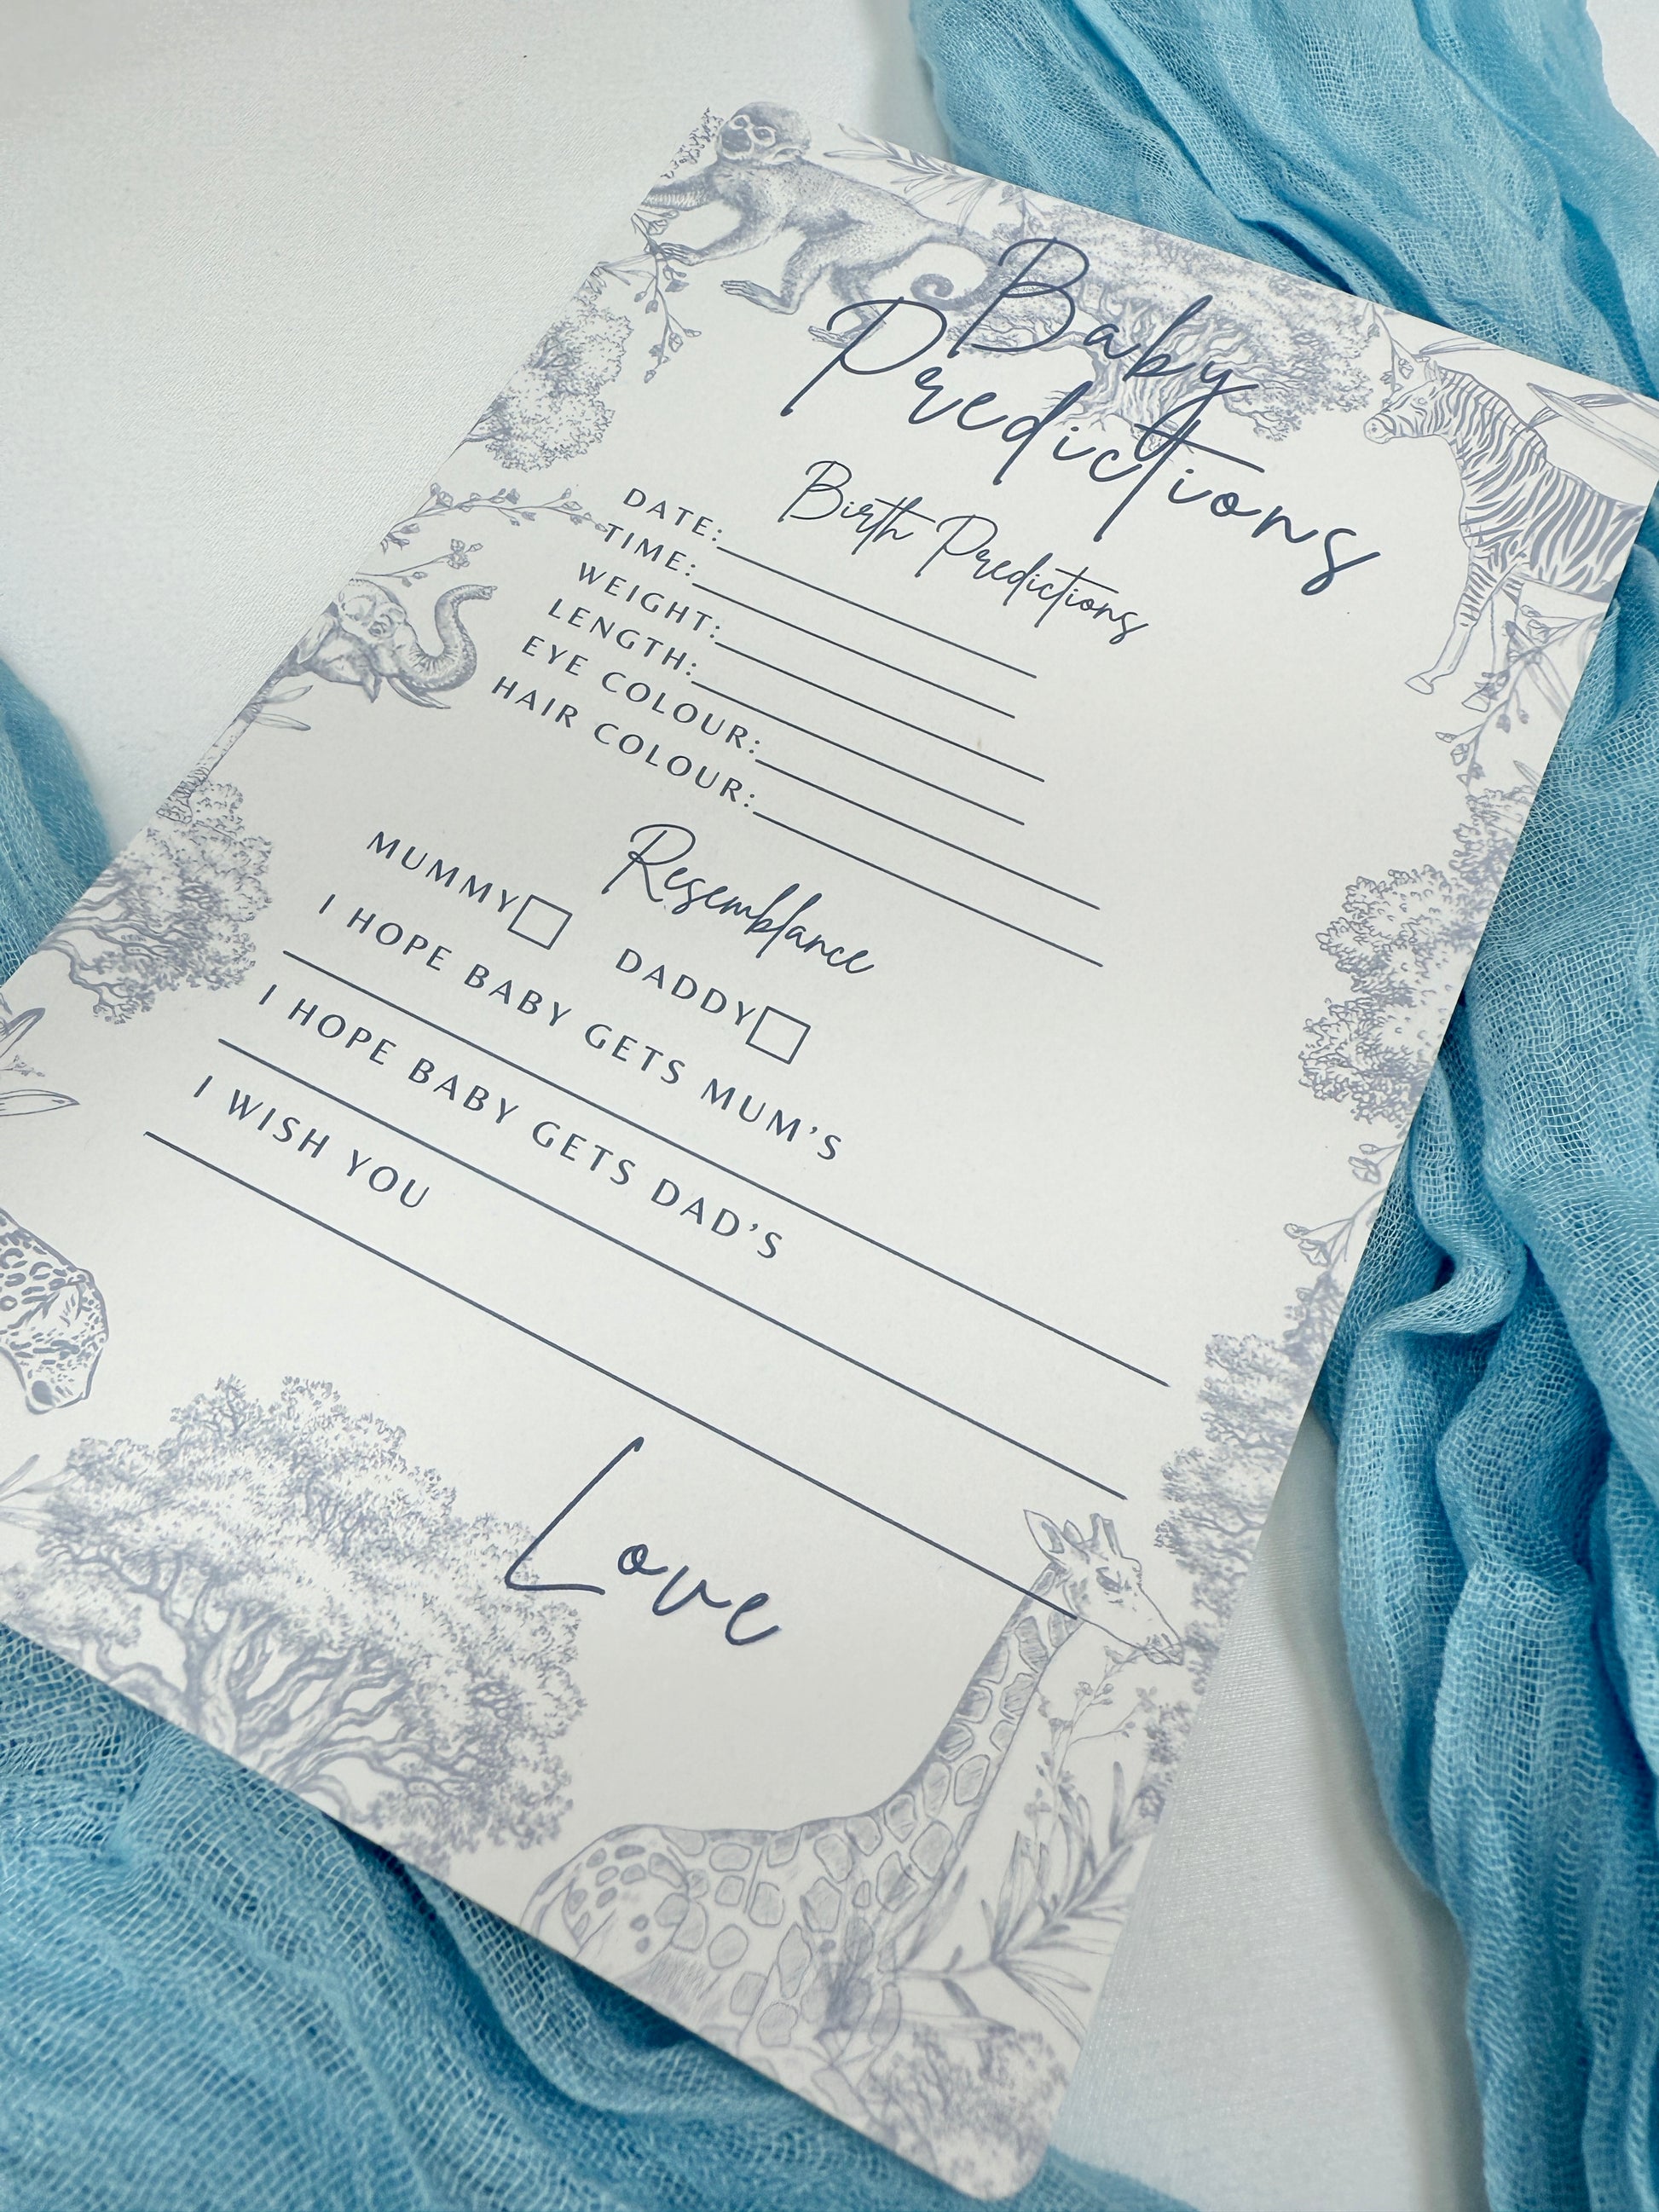 Baby
Predictions
Birth Predictions
DATE:
TIME:
WEIGHT:
LENGTH:
EYE COLOUR:
HAIR COLOUR:
Resemblance
MUMMY DADDY
I HOPE BABY GETS MUM'S
I HOPE BABY GETS DAD'S
I WISH YOU
Love